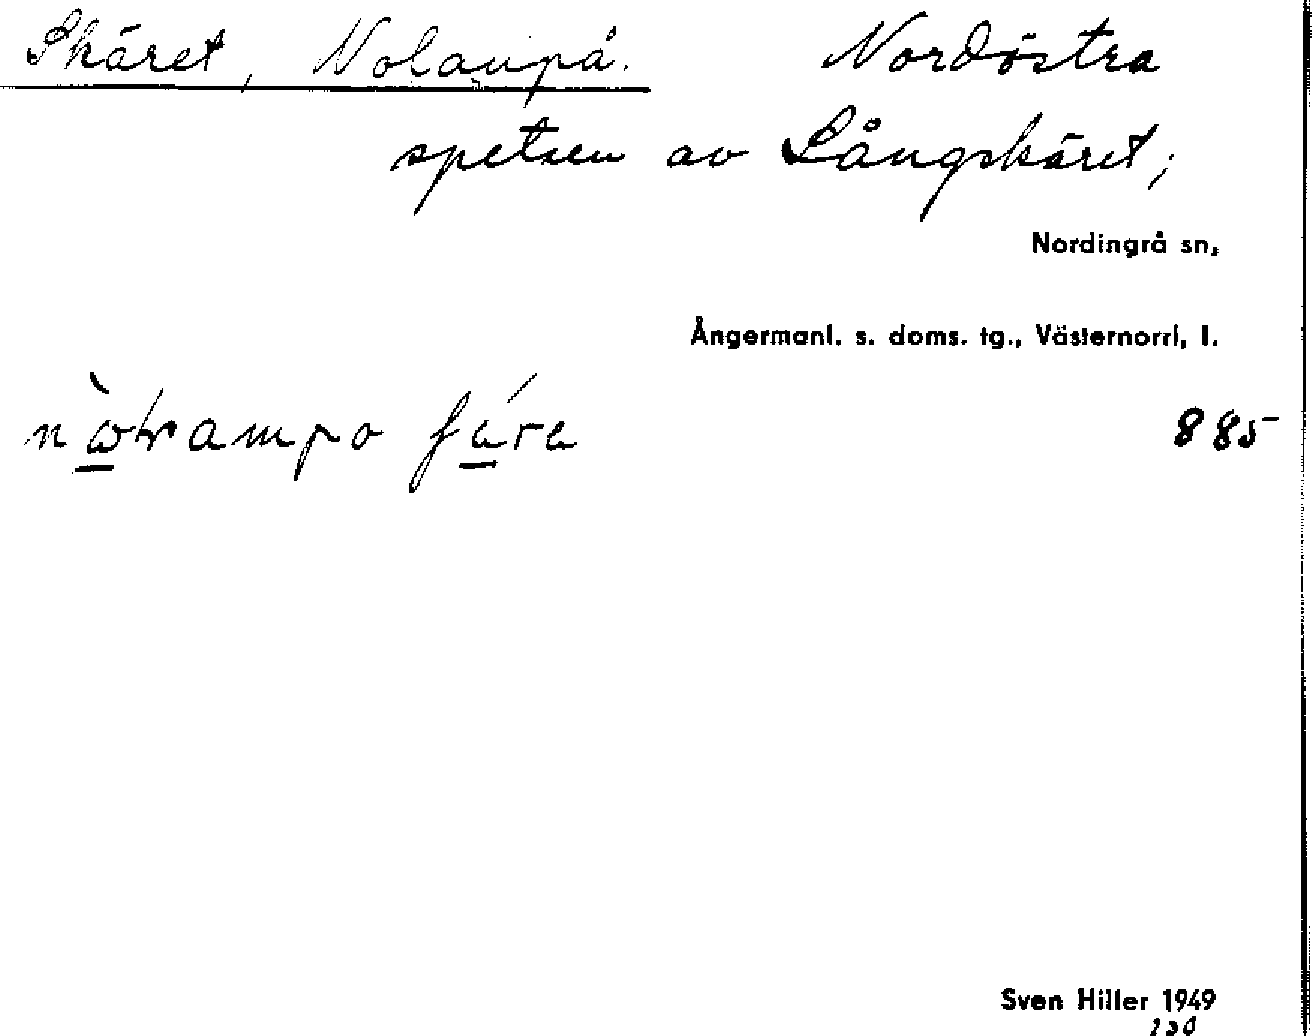 Skäret, Nolanpå. Nordöstra
spetsen av Långskäret;
Nordingrå sn,
Ångermanl. s. doms. tg., Västernorrl, l.
885
Sven Hiller 1949